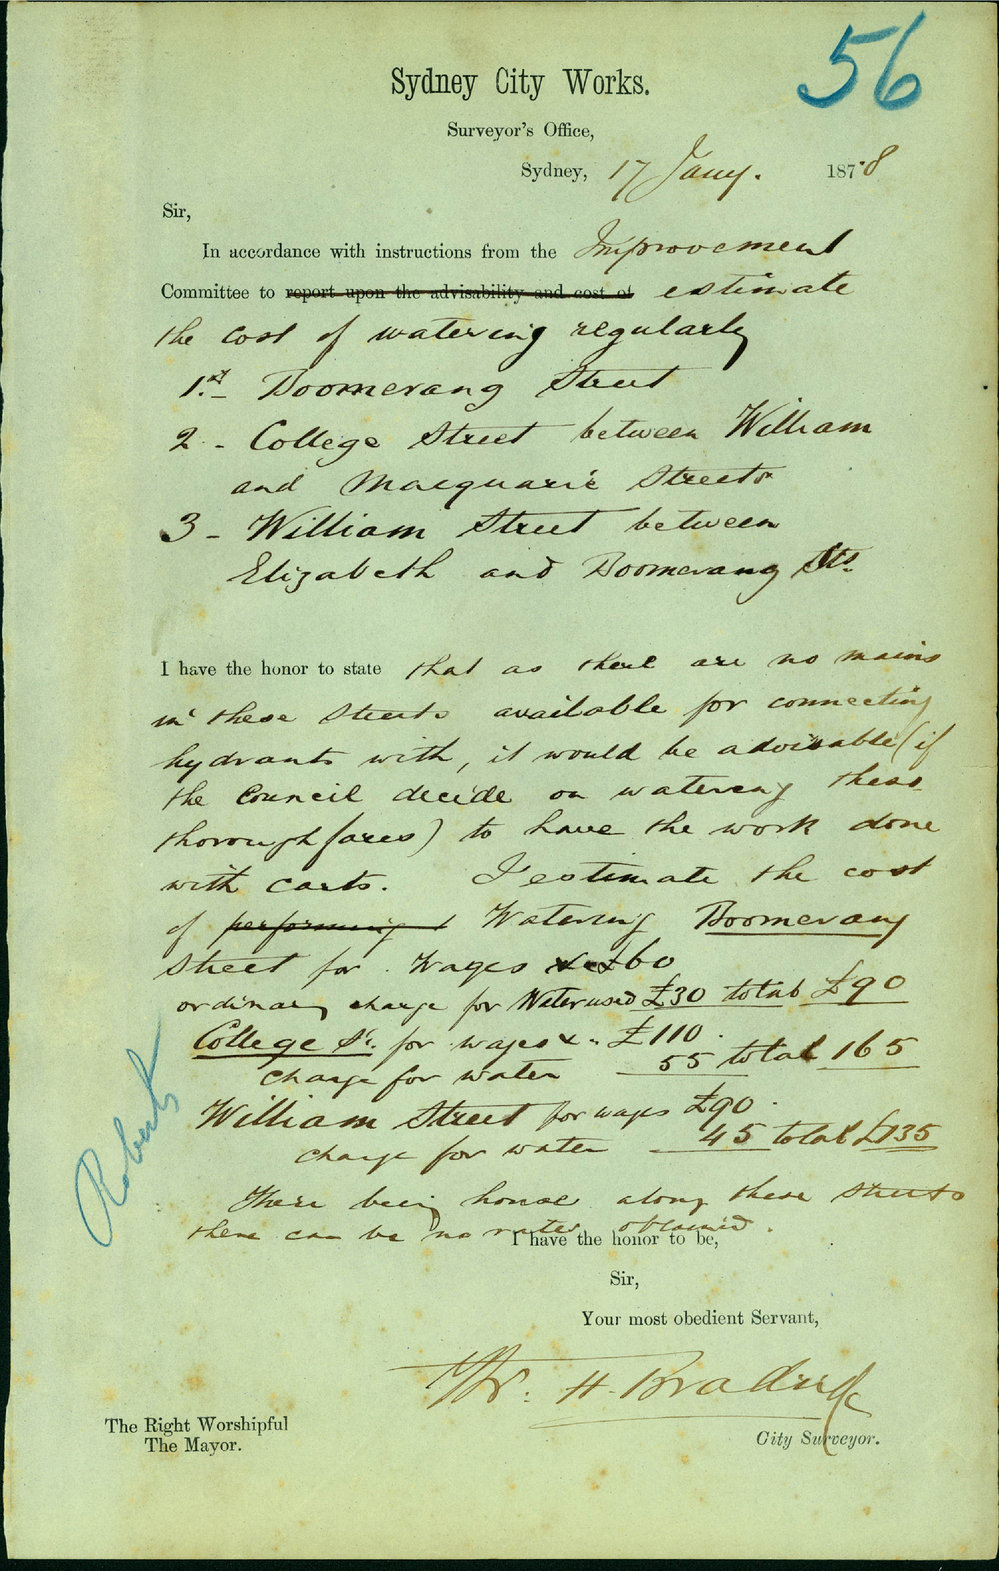 56
Sydney City Works.
Surveyor's Office,
Sydney, 17 Jany. 1878
Sir,
In accordance with instructions from the Improvement
Committee to report upon the advisability and cost of estimate
the cost of watering regularly
1st Boomerang Street
2 - College Street between William
and Macquarie Streets
3 - William Street between
Elizabeth and Boomerang Sts.
I have the honor to state that as there are no mains
in these Streets available for connecting
hydrants with, it would be advisable (if
the Council decide on watering these
thoroughfares) to have the work done
with carts. I estimate the cost
of performing Watering Boomerang
Street for Wages £60
ordinary charge for Water used £30 total £90
College St. for wages &c. £110
charge for water 55 total 165
William Street for wages £90
charge for water 45 total £135
There being house along these Streets
there can be no rates obtained.
I have the honor to be,
Sir,
Your most obedient Servant,
The Right Worshipful
The Mayor.
City Surveyor.
Roberts